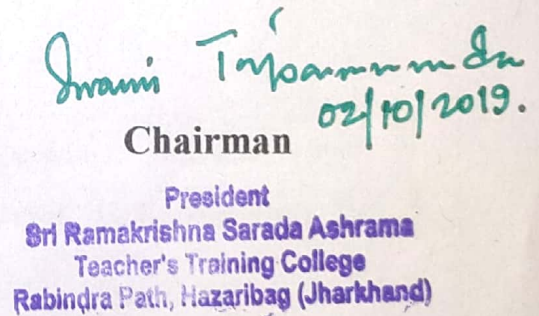 Swami
02/10/2019.
Chairman
President
Sri Ramakrishna Sarada Ashrama
Teacher's Training College
Rabindra Path, Hazaribag (Jharkhand)